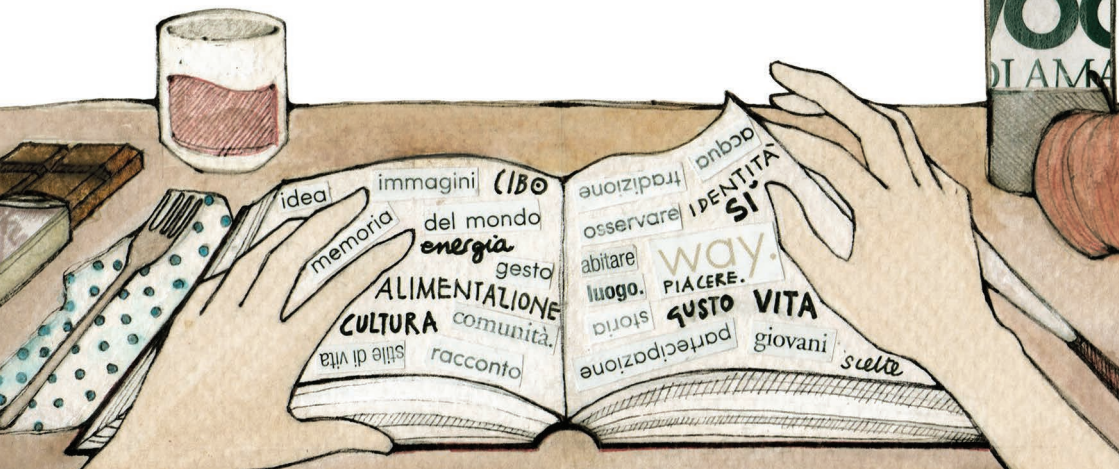 idea
immagini
CIBO
memoria
del mondo
energia
gesto
ALIMENTAZIONE
CULTURA
comunità.
stile di vita
racconto
acqua
tradizione
IDENTITÀ
SÌ
osservare
abitare
way.
luogo.
PIACERE.
storia
GUSTO
VITA
partecipazione
giovani
scelte
DI AMA